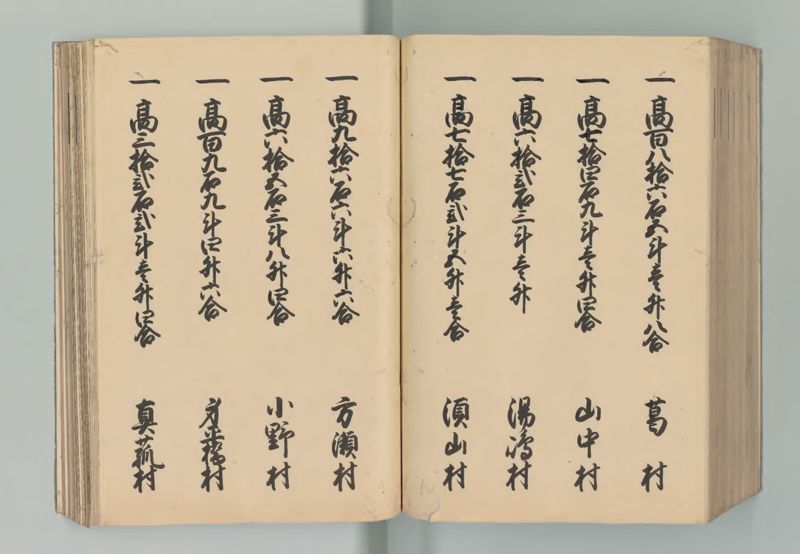 一 高百八拾六石五斗壱升八合 葛村
一 高七拾四石九斗壱升四合 山中村
一 高六拾弐石三斗壱升 湯嶋村
一 高七拾七石弐斗五升壱合 須山村
一 高九拾六石六斗六升六合 方瀬村
一 高六拾五石三斗八升四合 小野村
一 高百九石九斗四升六合 村
一 高三拾弐石弐斗壱升四合 真菰村